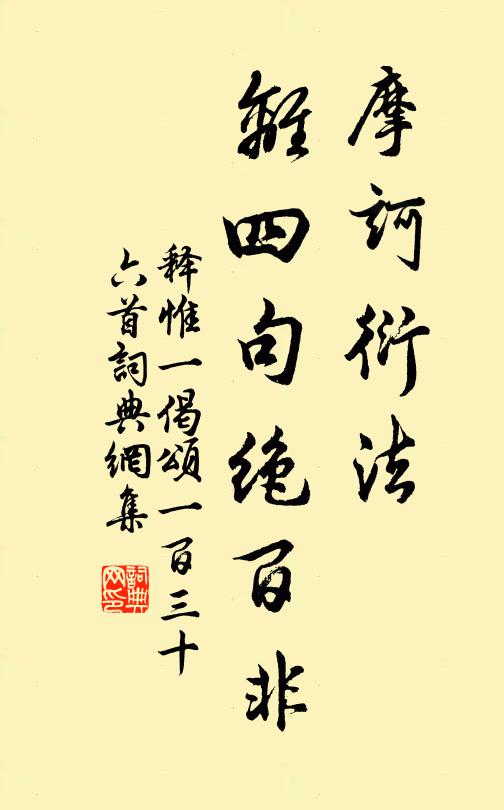 摩訶衍法
離四句絶百非
释惟一偈頌一百三十
六首詞典網集
詞典網印